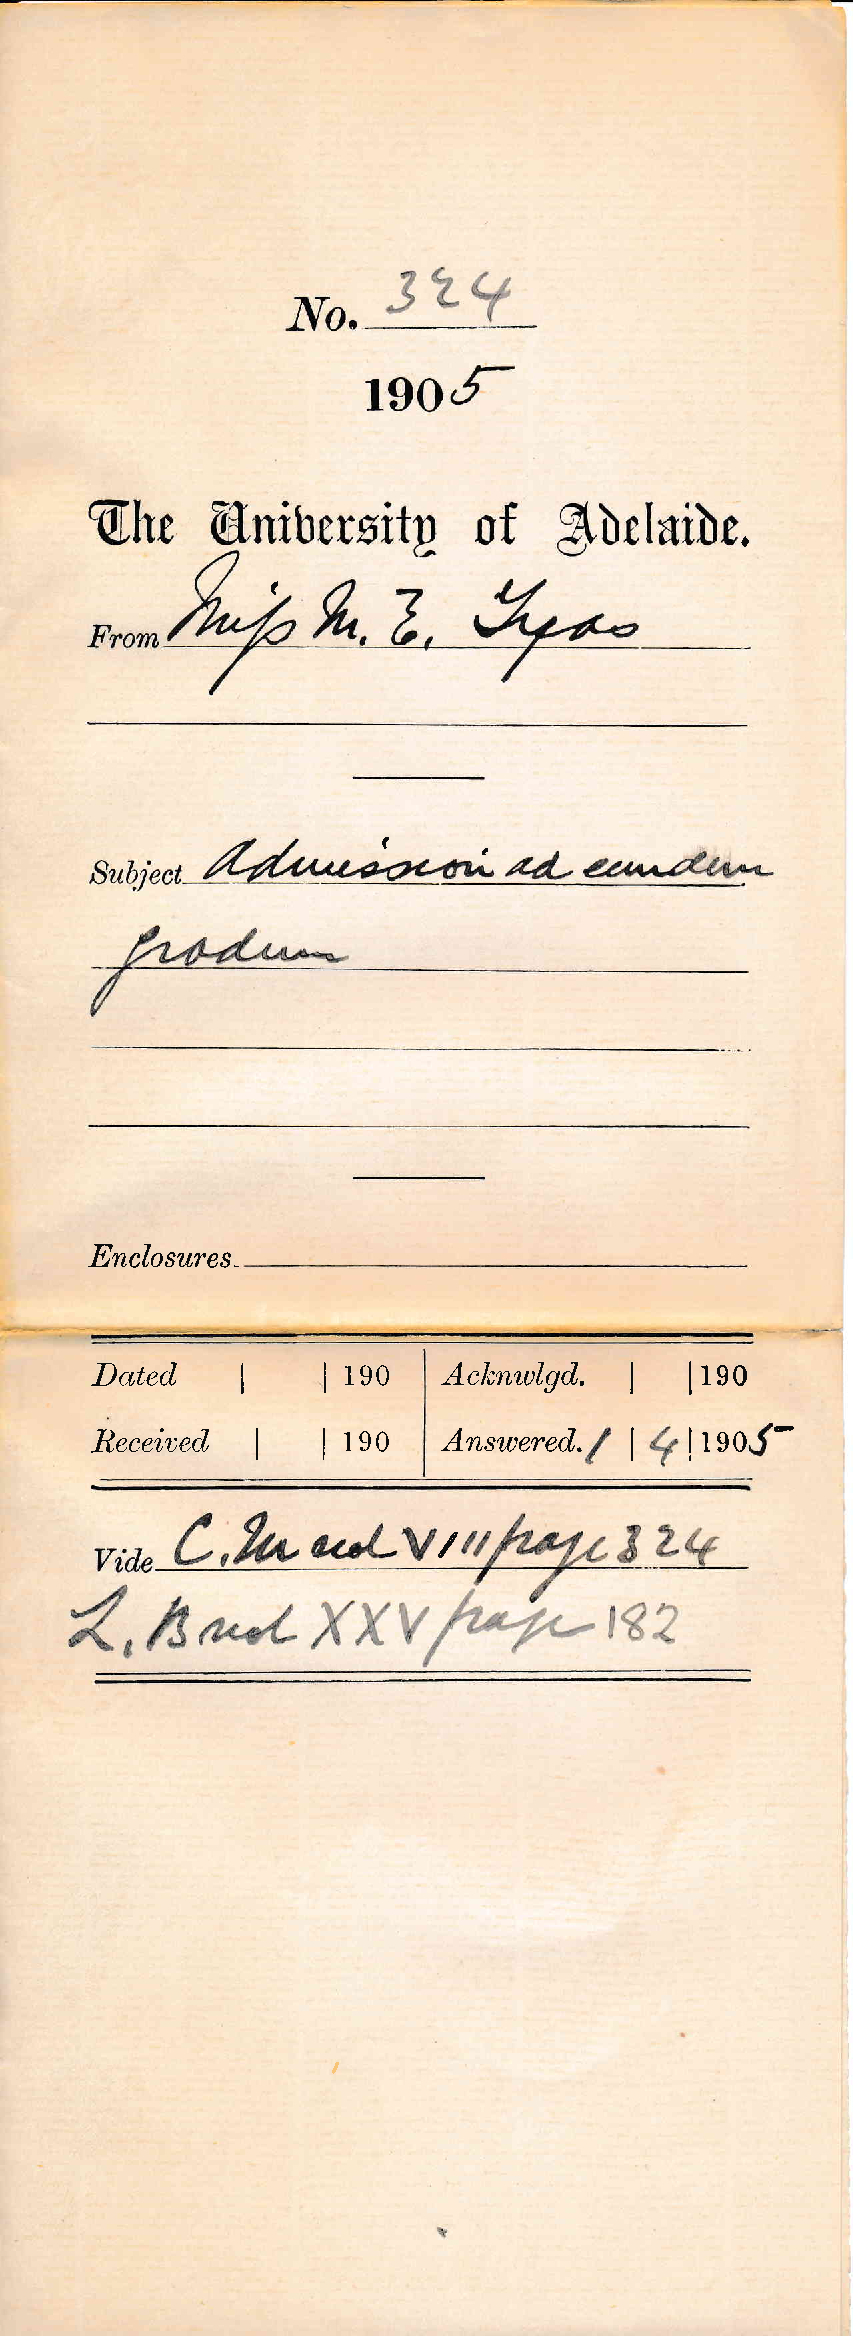 No. 324
1905
The University of Adelaide.
From Miss M. E. Tyas
Subject Admission ad eundem
gradum
Enclosures
Dated | | 190 Acknwlgd. | | 190
Received | | 190 Answered. 1 | 4 | 1905
Vide C. M vol VIII page 324
L. B vol XXV page 182